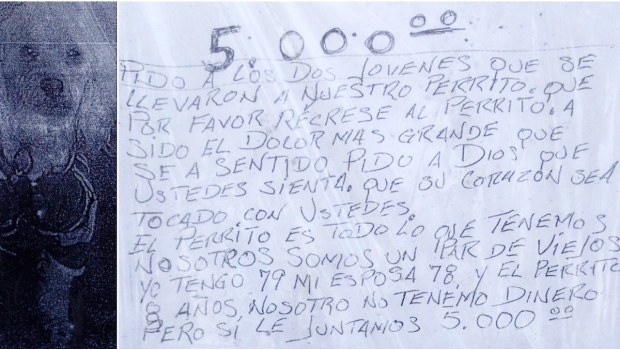 5.000.00
PIDO A LOS DOS JOVENES QUE SE
LLEVARON A NUESTRO PERRITO. QUE
POR FAVOR RECRESE AL PERRITO. A
SIDO EL DOLOR MAS GRANDE QUE
SE A SENTIDO PIDO A DIOS QUE
USTEDES SIENTA. QUE SU CORAZON SEA
TOCADO CON USTEDES.
EL PERRITO ES TODO LO QUE TENEMOS
NOSOTROS SOMOS UN PAR DE VIEJOS
YO TENGO 79 MI ESPOSA 78, Y EL PERRITO
8 AÑOS, NOSOTRO NO TENEMO DINERO
PERO SI LE JUNTAMOS 5.000 00